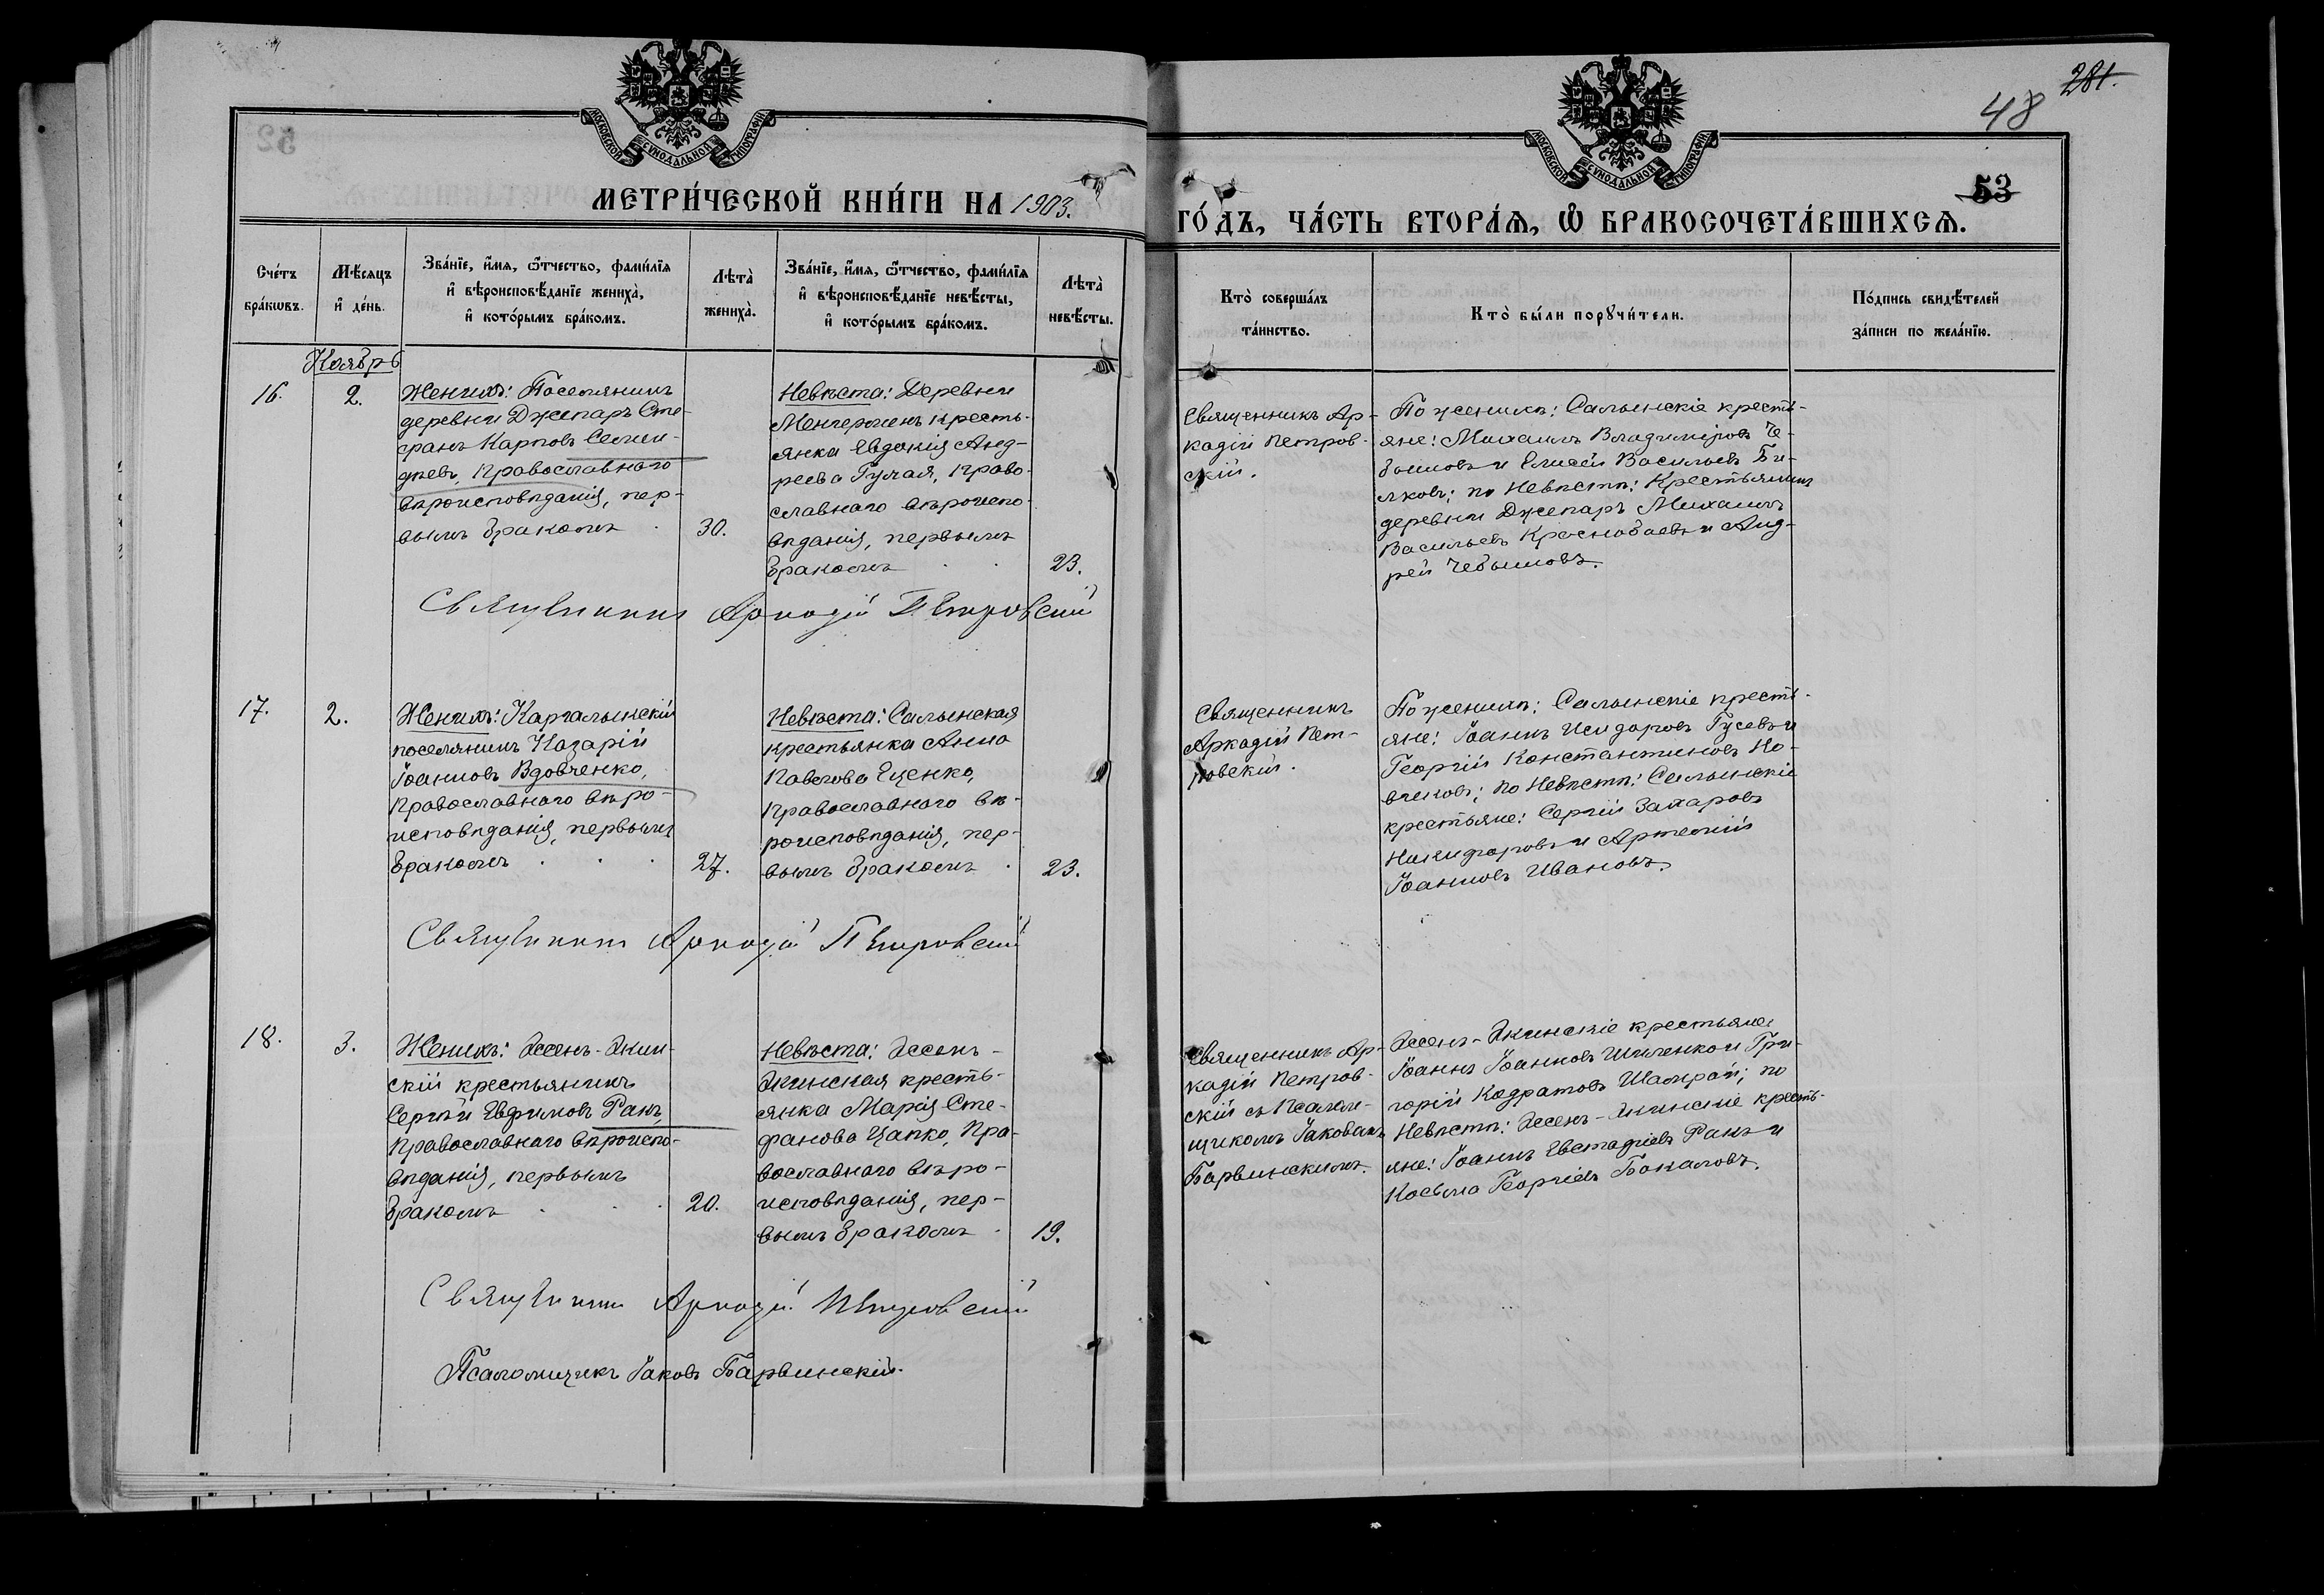 281.
48
53
МОСКОВСКОЙ СУНОДАЛЬНОЙ ТИПОГРАФІИ
МОСКОВСКОЙ СУНОДАЛЬНОЙ ТИПОГРАФІИ
МЕТРИ́ЧЕСКОЙ КНИ́ГИ НА 1903.
ГО́ДЪ, ЧА́СТЬ ВТОРА́Ѧ, Ѡ҆ БРАКОСОЧЕТА́ВШИХСѦ.
Сче́тъ
бра́кѡвъ.
Мѣ́сяцъ
и҆ де́нь.
Зва́нїе, и҆́мѧ, ѻ҆́тчество, фами́лїѧ
и҆ вѣроисповѣ́данїе жениха̀,
и҆ кото́рымъ бра́комъ.
Лѣта̀
жениха̀.
Зва́нїе, и҆́мѧ, ѻ҆́тчество, фами́лїѧ
и҆ вѣроисповѣ́данїе невѣ́сты,
и҆ кото́рымъ бра́комъ.
Лѣта̀
невѣ́сты.
Кто̀ соверша́лъ
та́инство.
Кто̀ бы́ли порꙋчи́тели.
По́дпись свидѣ́телей
за́писи по жела́нїю.
Ноябрь
16.
2.
Женихъ: Поселянинъ
деревни Джепаръ Сте-
фанъ Карповъ
Православнаго
вѣроисповѣданія, пер-
вымъ бракомъ
30.
Невѣста: Деревни
кресть-
янка Евдокія Анд-
реева Гулая, Право-
славнаго вѣроиспо-
вѣданія, первымъ
бракомъ
23.
Священникъ Ар-
кадій Петров-
скій.
По женихѣ: Салынскіе кресть-
яне: Михаилъ Владиміровъ Че-
бышовъ и Елисей Васильевъ Бѣ-
ляковъ; по Невѣстѣ: Крестьянинъ
деревни Джепаръ Михаилъ
Васильевъ Краснобаевъ и Анд-
рей Чебышовъ.
Священникъ Аркадій Петровскій
17.
2.
Женихъ: Каргалынскій
поселянинъ Назарій
Іоанновъ Вдовченко,
Православнаго вѣро-
исповѣданія, первымъ
бракомъ
27.
Невѣста: Салынская
крестьянка Анна
Павлова Ещенко,
Православнаго вѣ-
роисповѣданія, пер-
вымъ бракомъ
23.
Священникъ
Аркадій Пет-
ровскій.
По женихѣ: Салынскіе кресть-
яне: Іоаннъ Исидоровъ Гусевъ и
Георгій Константиновъ Но-
виковъ; по Невѣстѣ: Салынскіе
крестьяне: Сергій Захаровъ
Никифоровъ и Артемій
Іоанновъ Ивановъ.
Священникъ Аркадій Петровскій
18.
3.
Женихъ: Эссенъ-Экин-
скій крестьянинъ
Сергій Евфимовъ Ракъ,
Православнаго вѣроиспо-
вѣданія, первымъ
бракомъ
20.
Невѣста: Эссенъ-
Экинская кресть-
янка Марія Сте-
фанова Цапко, Пра-
вославнаго вѣро-
исповѣданія, пер-
вымъ бракомъ
19.
Священникъ Ар-
кадій Петров-
скій съ Псалом-
щикомъ Іаковомъ
Барвинскимъ.
Эссенъ-Экинскіе крестьяне
Іоаннъ Іоанновъ Шиленко и Гри-
горій Кодратовъ Шамрай; по
Невѣстѣ: Эссенъ-Экинскіе кресть-
яне: Іоаннъ Евстафіевъ Ракъ и
Косьма Георгіевъ Бокаловъ.
Священникъ Аркадій Петровскій
Псаломщикъ Іаковъ Барвинскій.